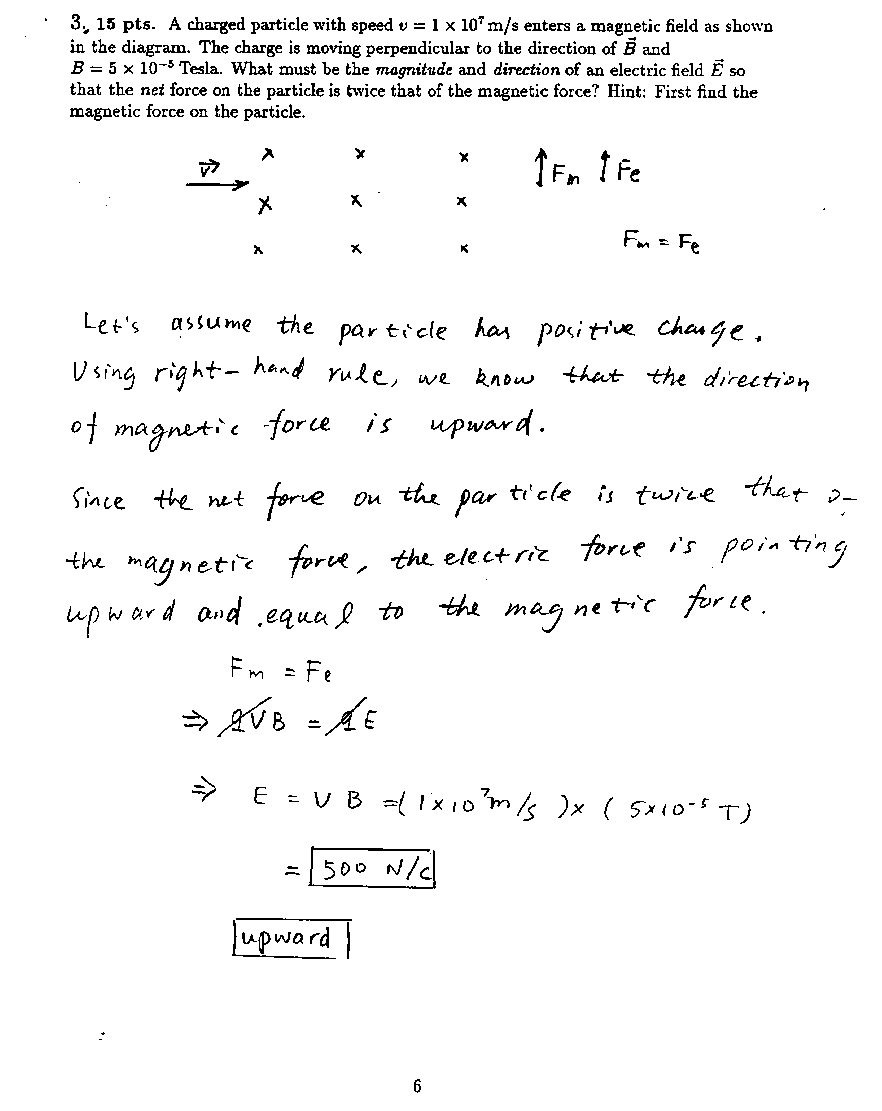 3. 15 pts. A charged particle with speed v = 1 × 10⁷ m/s enters a magnetic field as shown
in the diagram. The charge is moving perpendicular to the direction of B⃗ and
B = 5 × 10⁻⁵ Tesla. What must be the magnitude and direction of an electric field E⃗ so
that the net force on the particle is twice that of the magnetic force? Hint: First find the
magnetic force on the particle.
v⃗ x x x ↑Fm ↑Fe
x x x
x x x Fm = Fe
Let's assume the particle has positive charge.
Using right-hand rule, we know that the direction
of magnetic force is upward.
Since the net force on the particle is twice that o
the magnetic force, the electric force is pointing
upward and equal to the magnetic force.
Fm = Fe
⇒ qVB = qE
⇒ E = VB = (1×10⁷m/s)×(5×10⁻⁵T)
= 500 N/C
upward
6